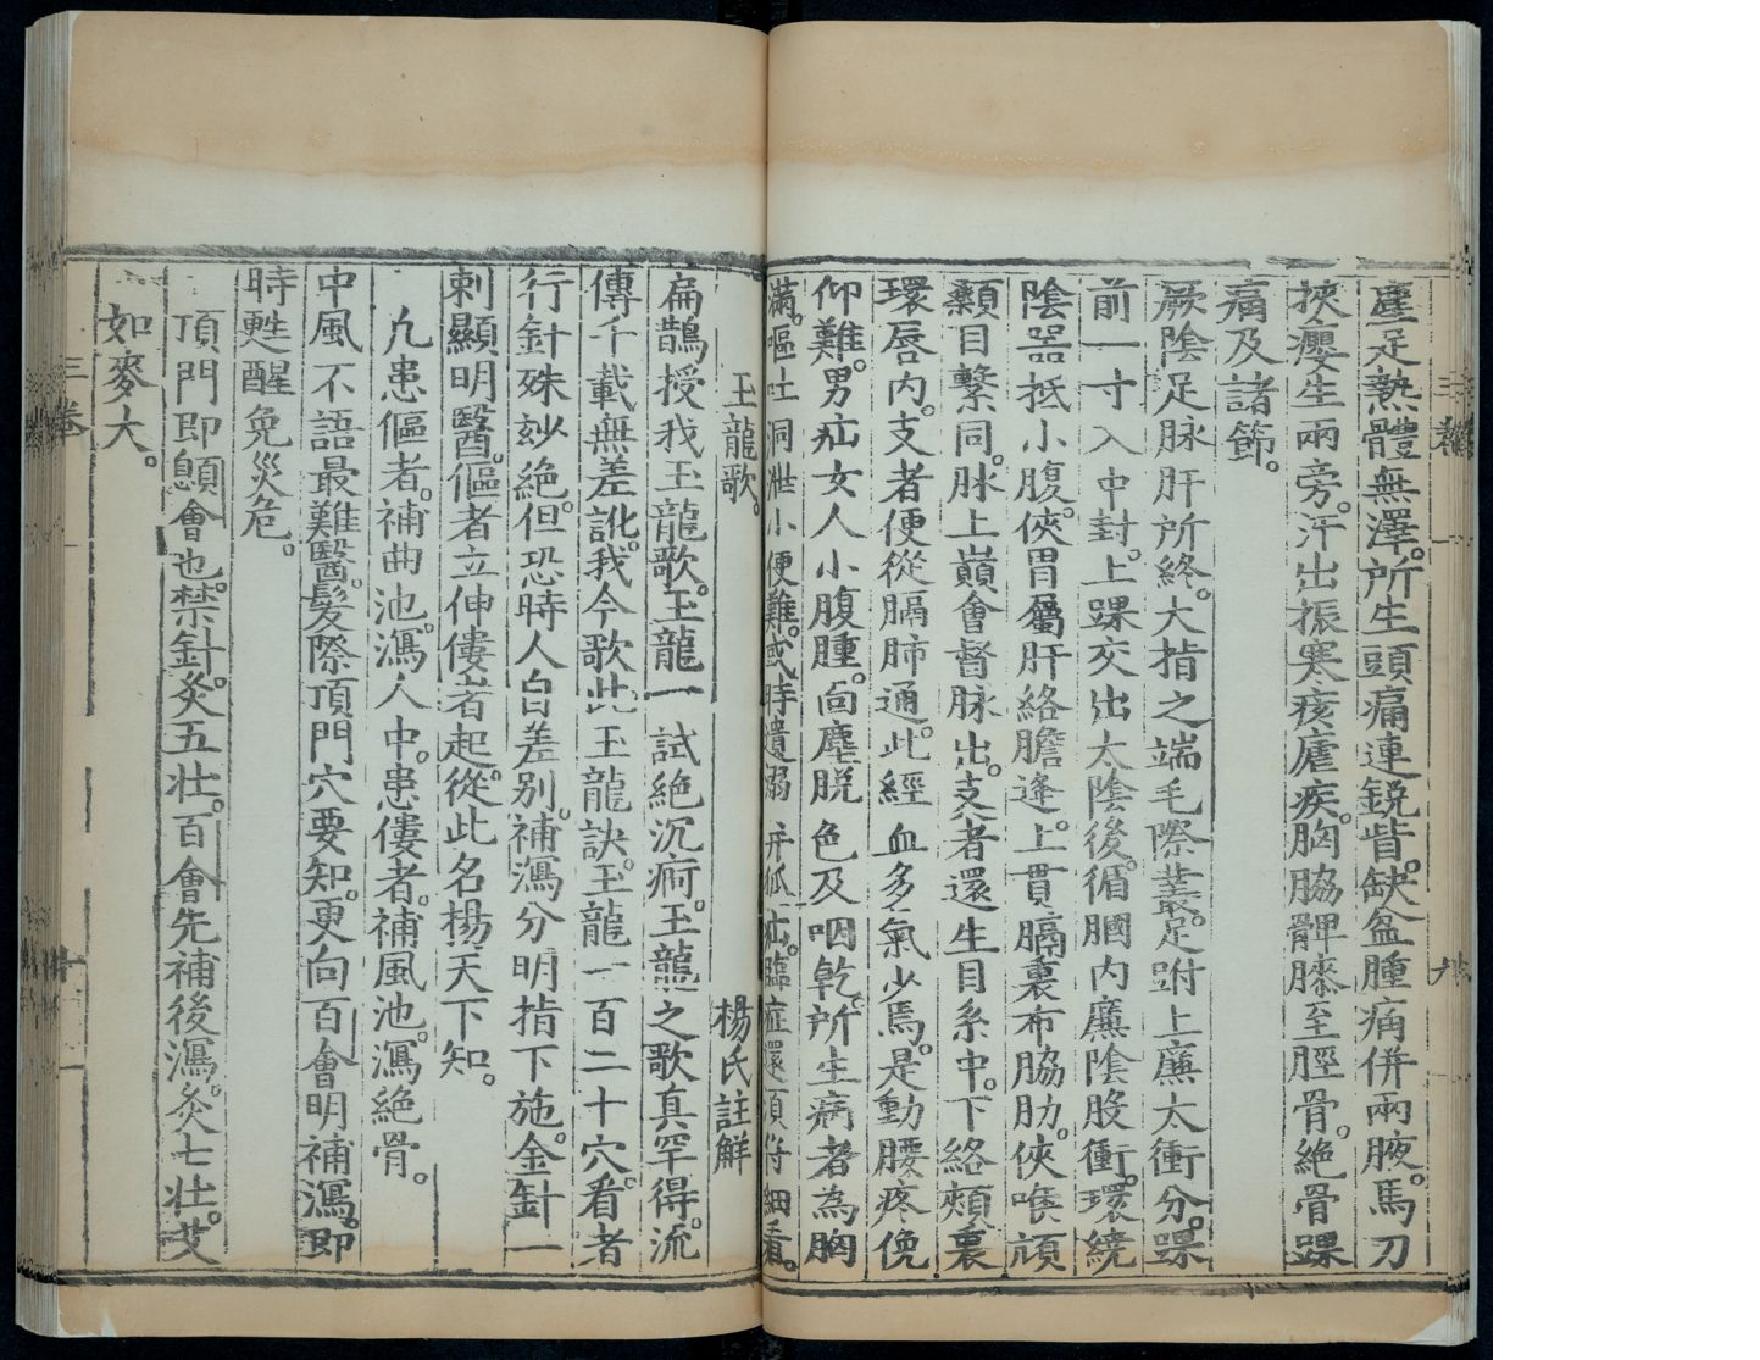 塵足熱體無澤。所生頭痛連銳眥。缺盆腫痛併兩腋。馬刀
挾癭生兩旁。汗出振寒痎瘧疾。胸脇髀膝至脛骨。絕骨踝
痛及諸節。
厥陰足脉肝所終。大指之端毛際叢。足跗上廉太衝分。踝
前一寸入中封。上踝交出太陰後。循膕內廉陰股衝。環繞
陰器抵小腹。俠胃屬肝絡膽逢。上貫膈裏布脇肋。俠喉頏
顙目繫同。脉上巔會督脉出。支者還生目系中。下絡頰裏
環唇內。支者便從膈肺通。此經血多氣少焉。是動腰疼俛
仰難。男疝女人小腹腫。面塵脫色及咽乾。所生病者為胸
滿。嘔吐洞泄小便難。或時遺溺并狐疝。臨症還須仔細看。
玉龍歌。 楊氏註解
扁鵲授我玉龍歌。玉龍一試絕沉痾。玉龍之歌真罕得。流
傳千載無差訛。我今歌此玉龍訣。玉龍一百二十穴。看者
行針殊妙絕。但恐時人自差別。補瀉分明指下施。金針一
刺顯明醫。傴者立伸僂者起。從此名揚天下知。
凡患傴者。補曲池。瀉人中。患僂者。補風池。瀉絕骨。
中風不語最難醫。髮際頂門穴要知。更向百會明補瀉。即
時甦醒免災危。
頂門即顖會也。禁針。灸五壯。百會先補後瀉。灸七壯。艾
如麥大。
三卷